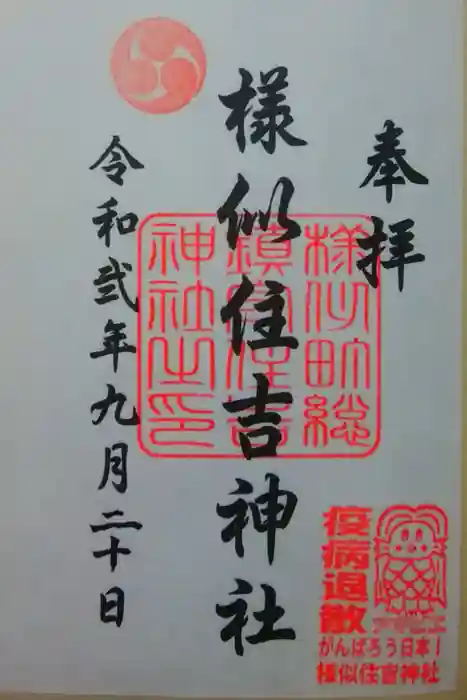 奉拝
様似住吉神社
様似町総
鎮守住吉
神社之印
令和弐年九月二十日
疫病退散
アマビエ
がんばろう日本！
様似住吉神社